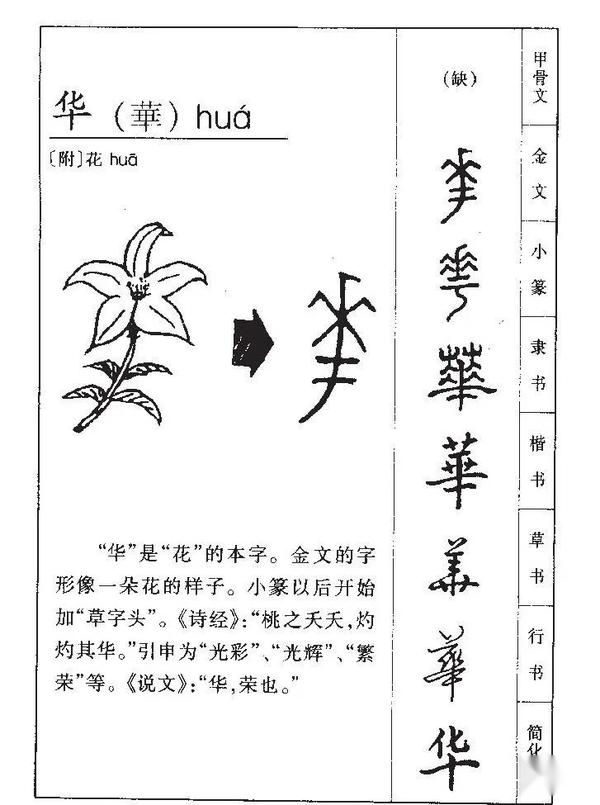 华（華）huá
〔附〕花 huā
“华”是“花”的本字。金文的字
形像一朵花的样子。小篆以后开始
加“草字头”。《诗经》：“桃之夭夭，灼
灼其华。”引申为“光彩”、“光辉”、“繁
荣”等。《说文》：“华，荣也。”
（缺）
甲骨文
金文
小篆
隶书
楷书
草书
行书
简化
華
華
華
华